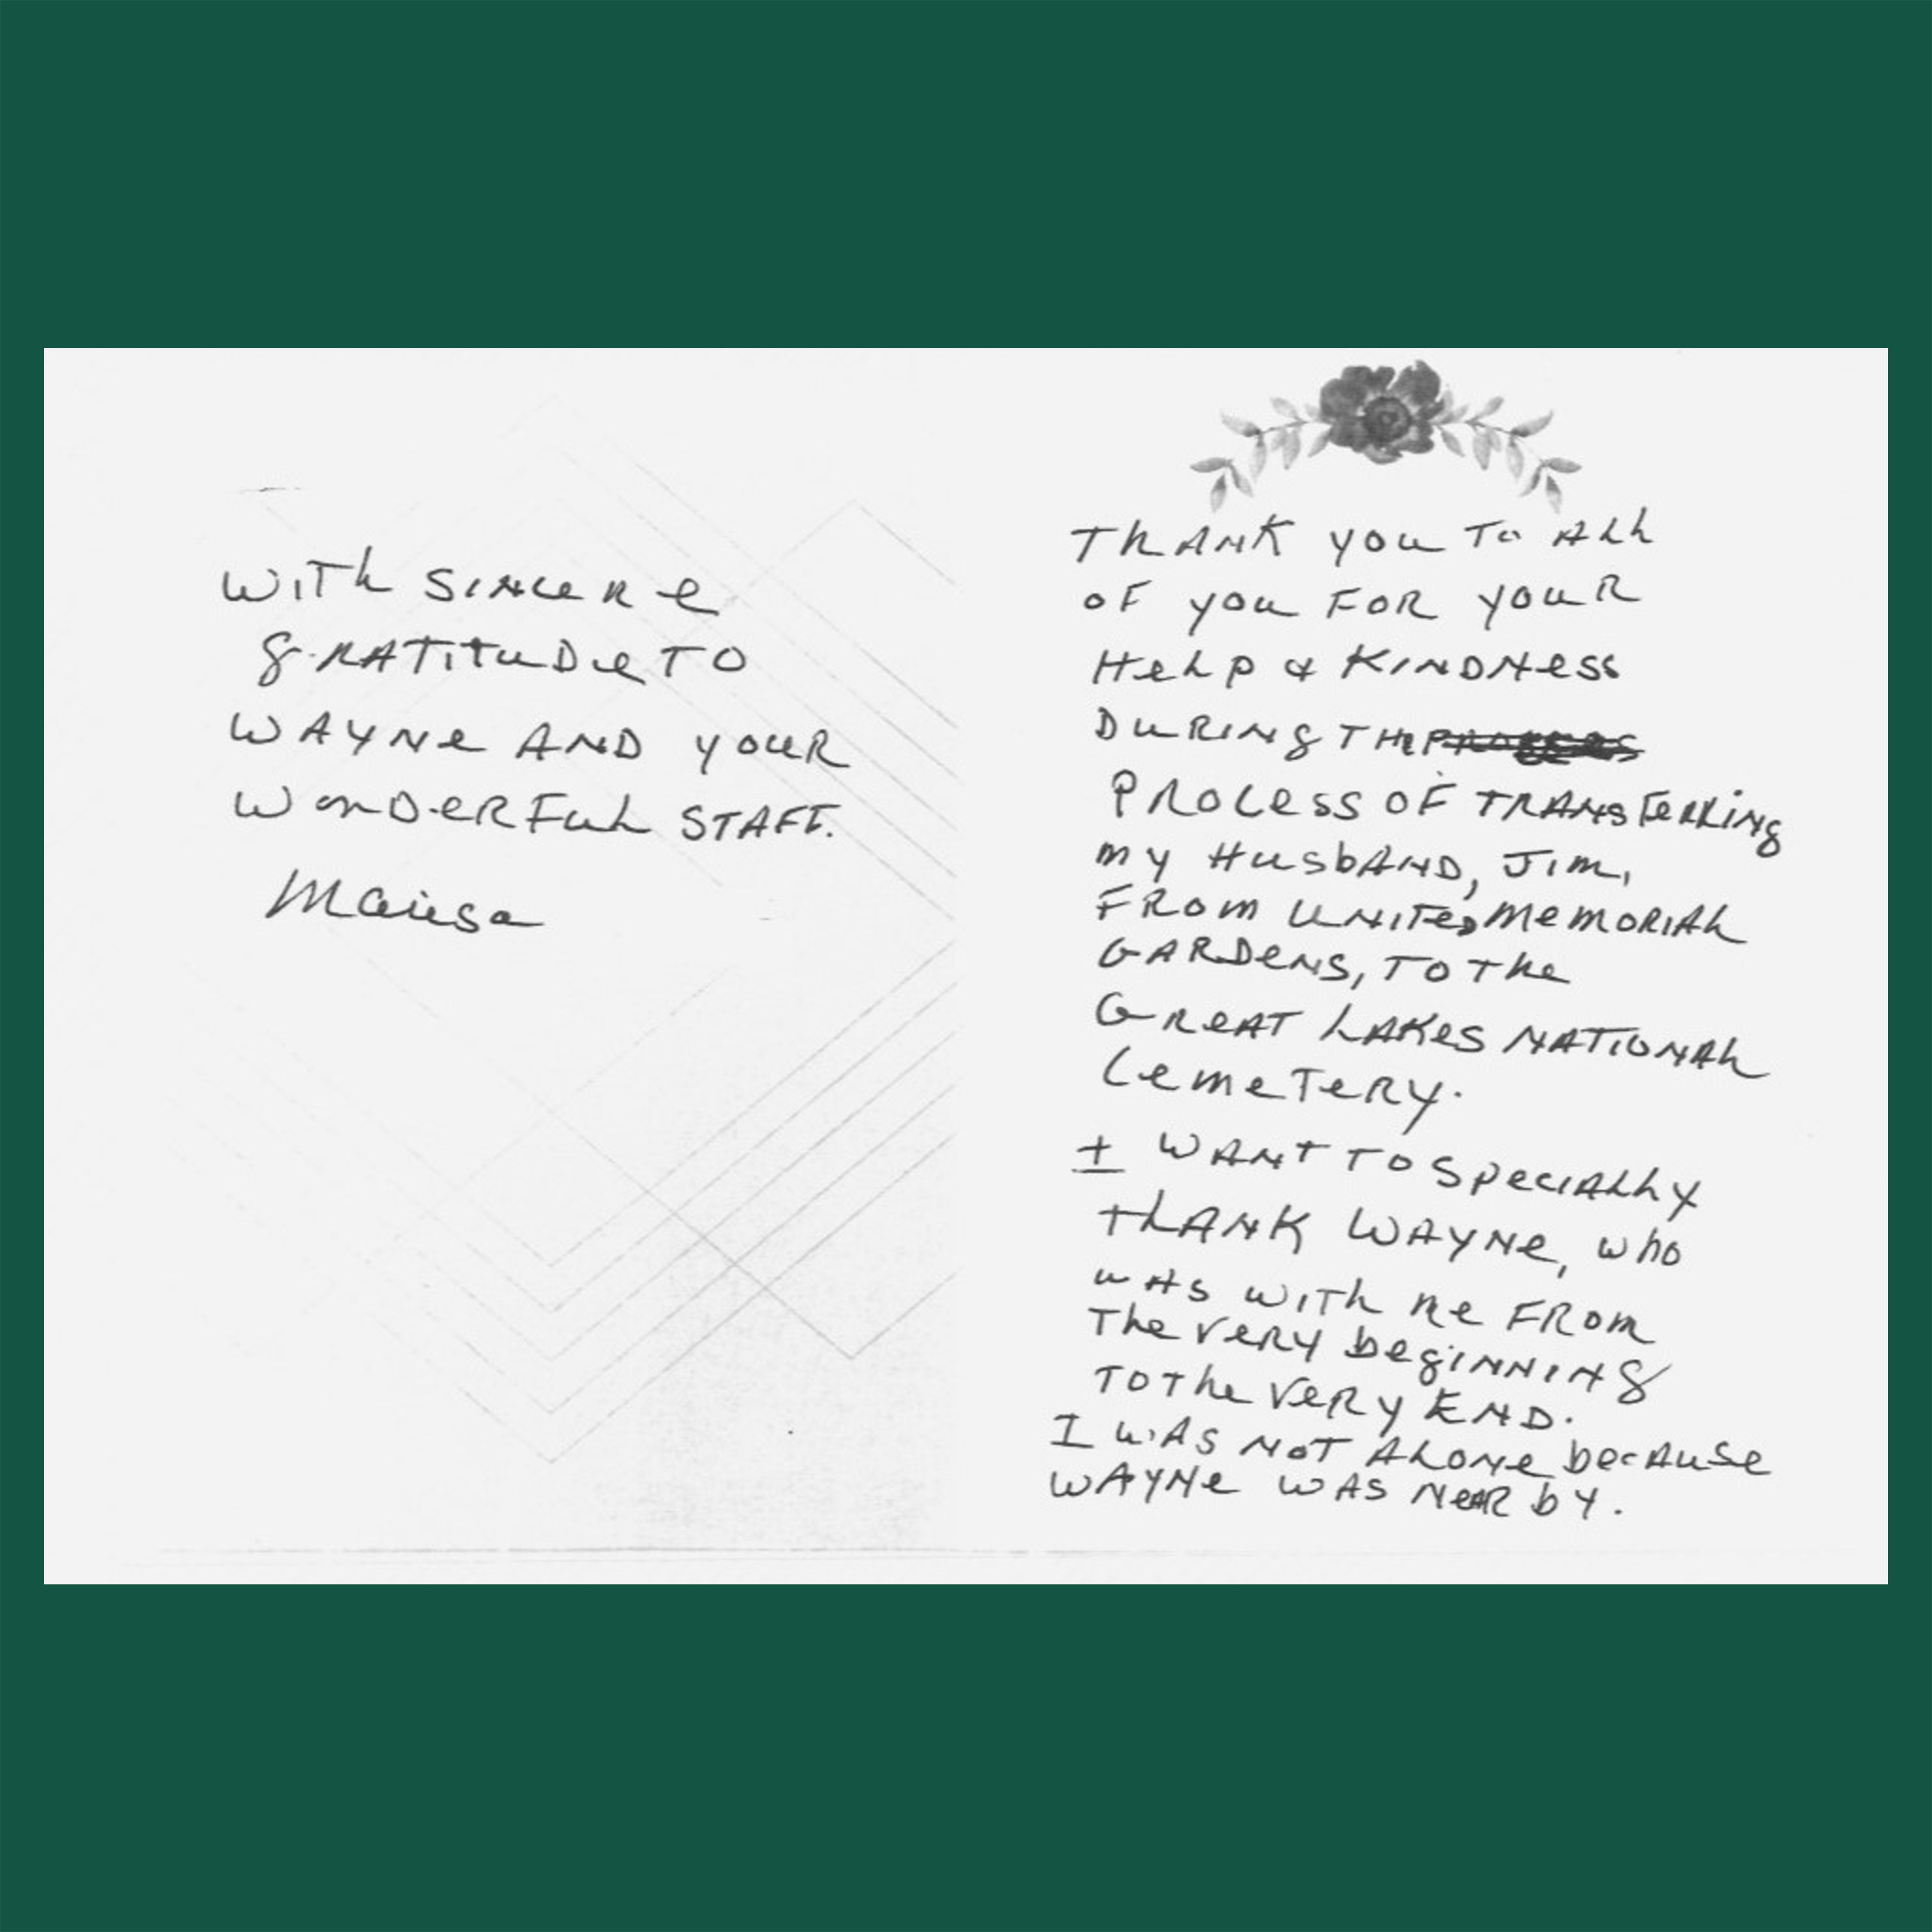 With sincere
gratitude to
Wayne and your
wonderful staff.
Thank you to all
of you for your
help & kindness
during the
process of transferring
my husband, Jim,
from United Memorial
Gardens, to the
Great Lakes National
Cemetery.
I want to specially
thank Wayne, who
was with me from
the very beginning
to the very end.
I was not alone because
Wayne was near by.